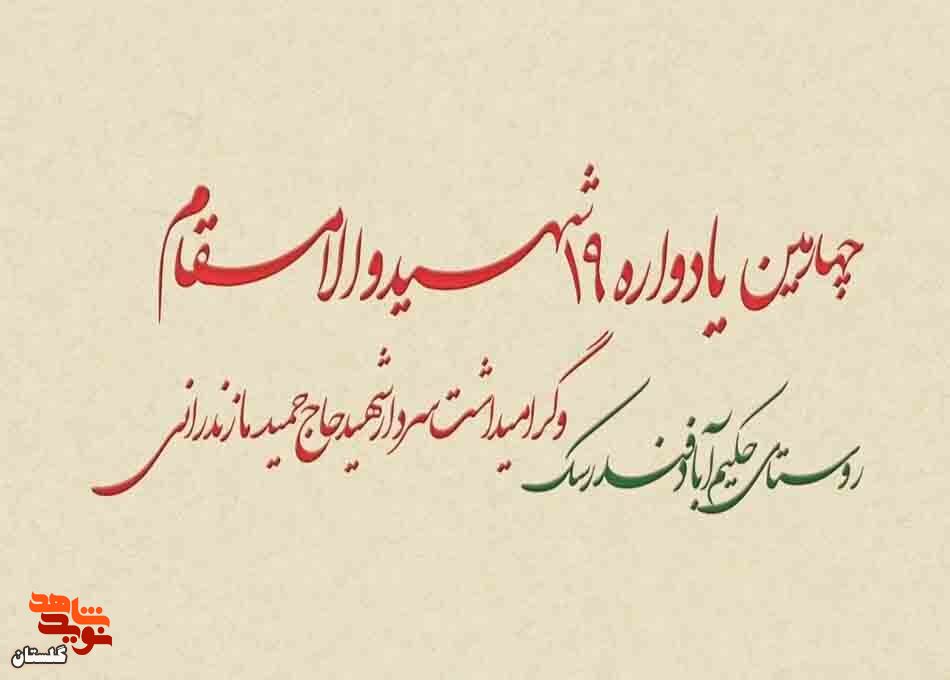 چهارمین یادواره ۱۹ شهید والامقام
روستای حکیم آباد فندرسک
وگرامیداشت سردار شهید حاج حمید مازندرانی
نوید شاهد
گلستان